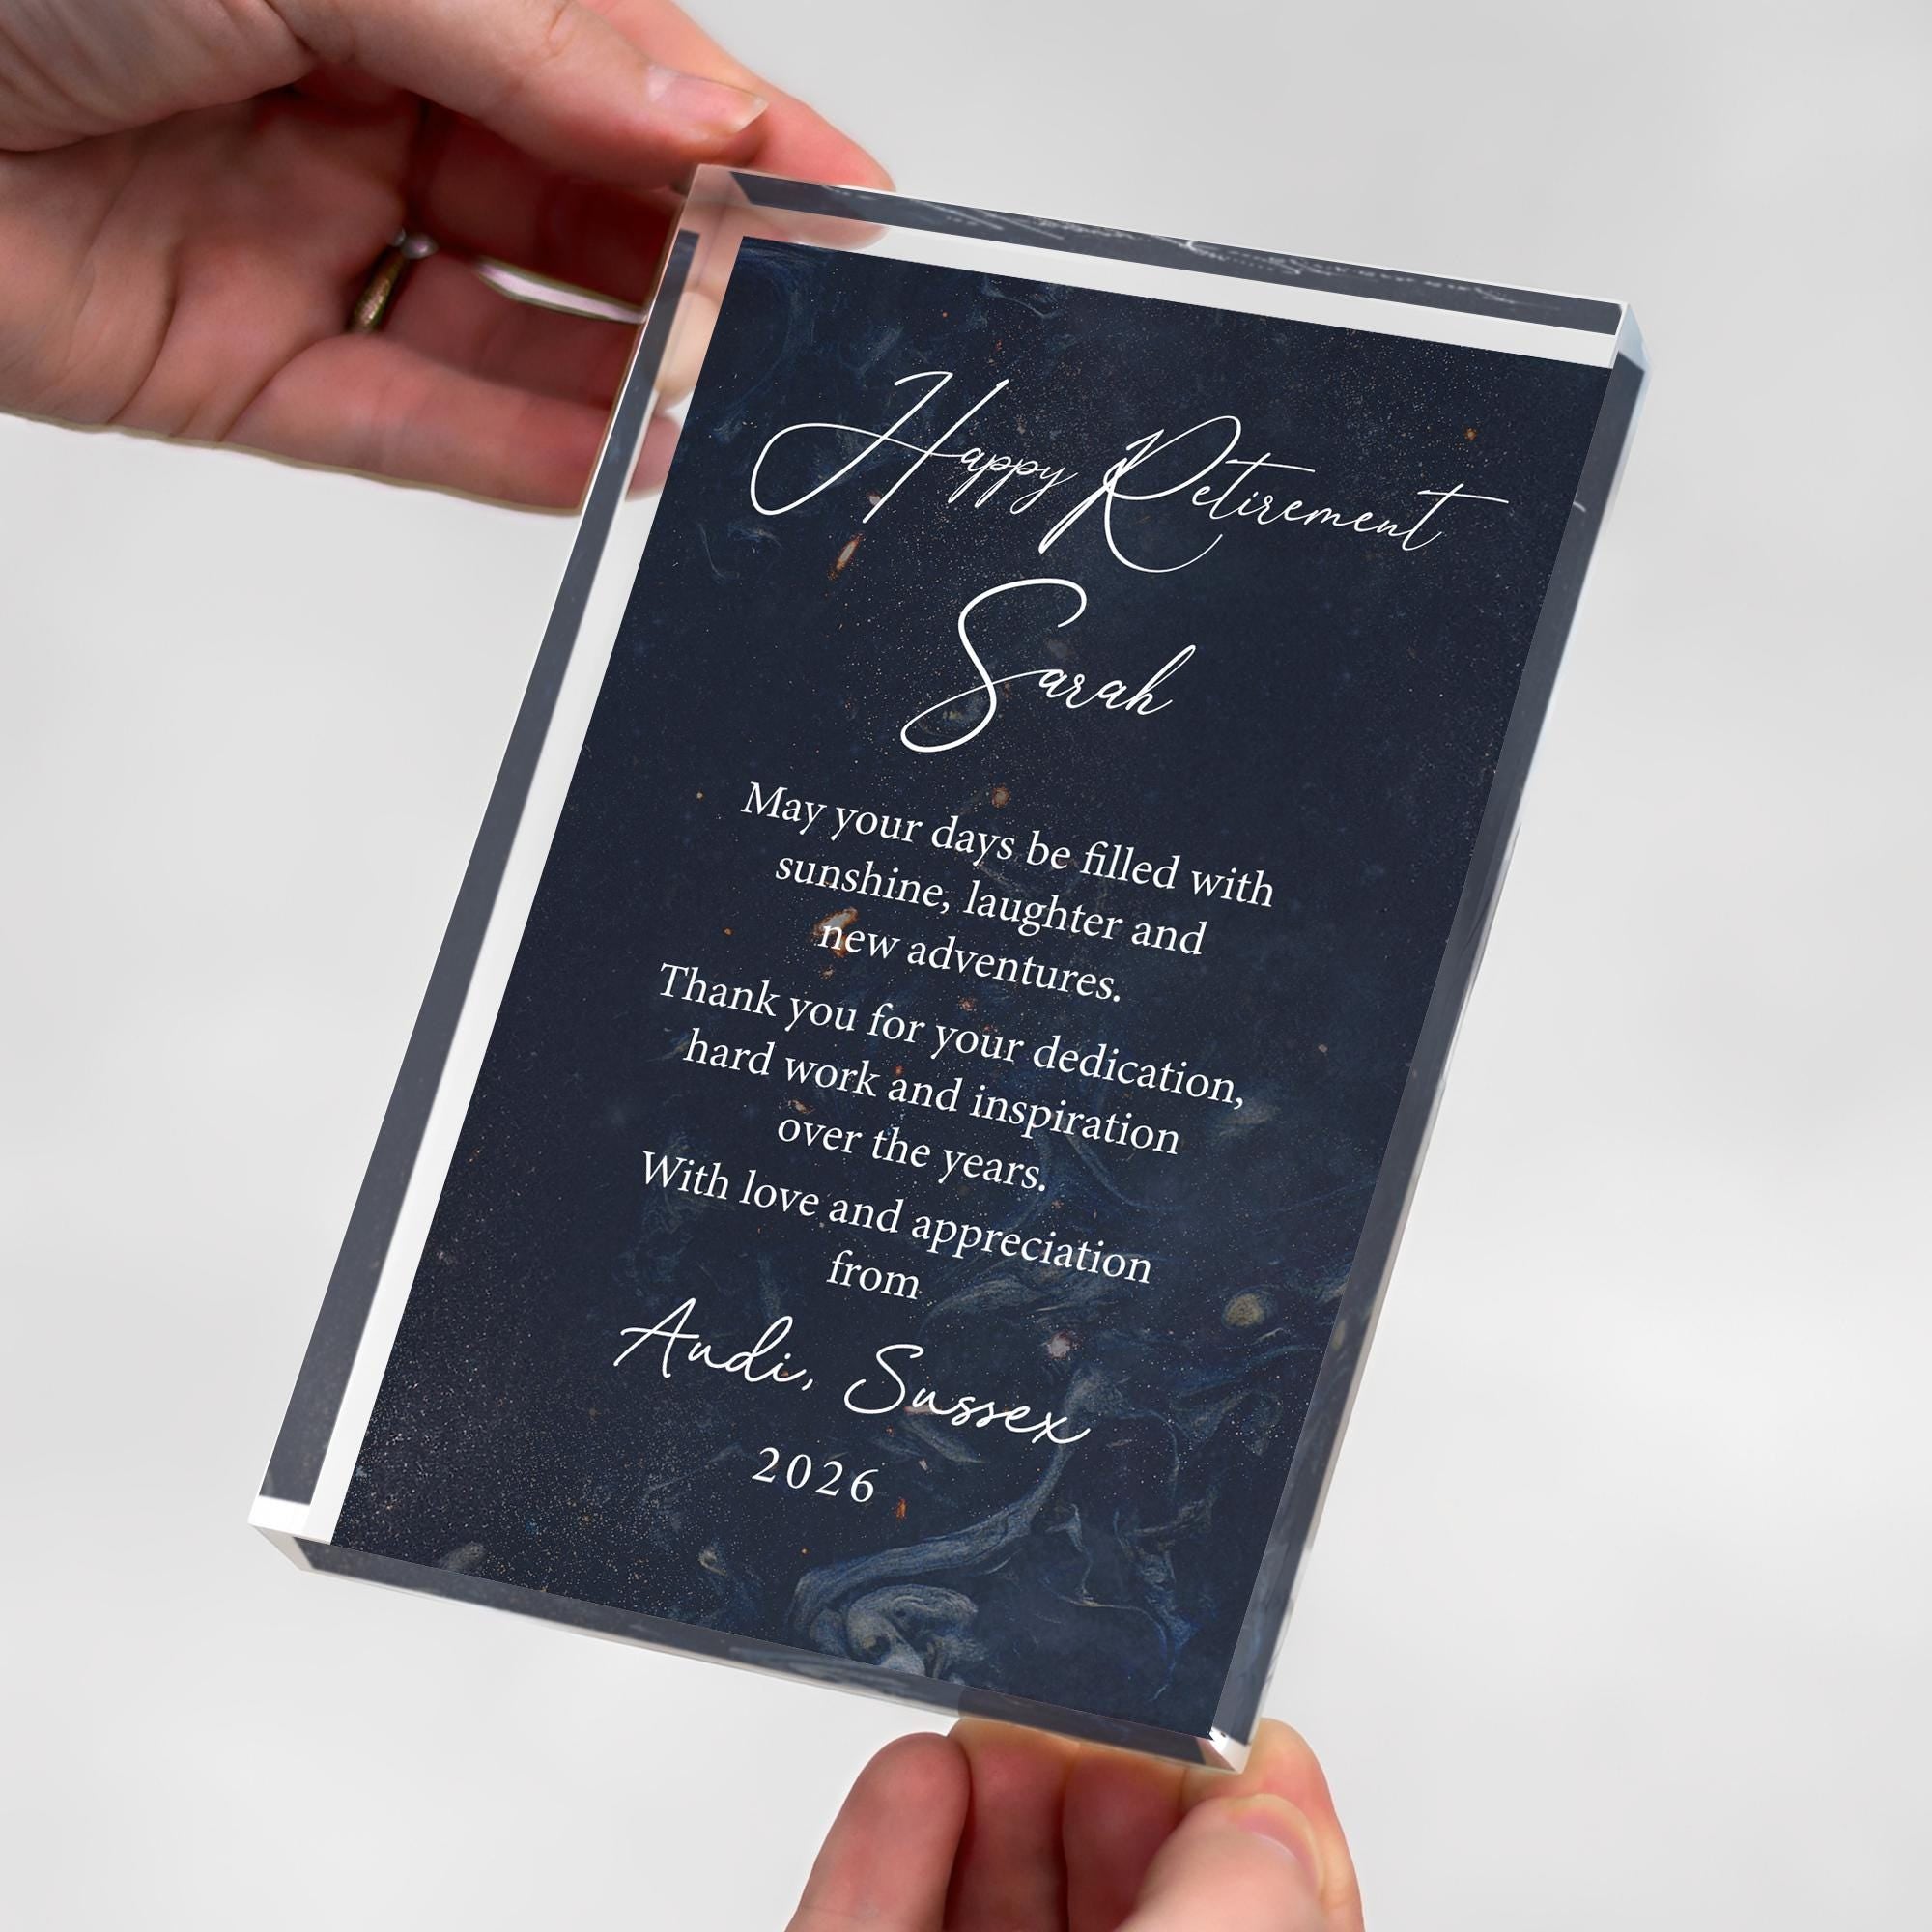 Happy Retirement
Sarah
May your days be filled with
sunshine, laughter and
new adventures.
Thank you for your dedication,
hard work and inspiration
over the years.
With love and appreciation
from
Audi, Sussex
2026